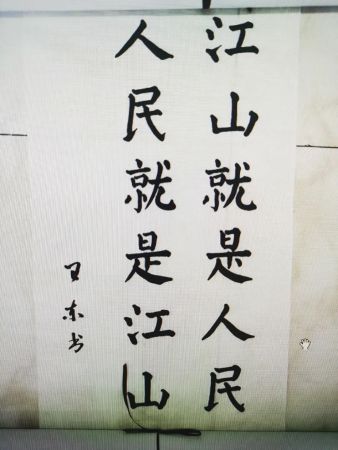 江山就是人民
人民就是江山
东书